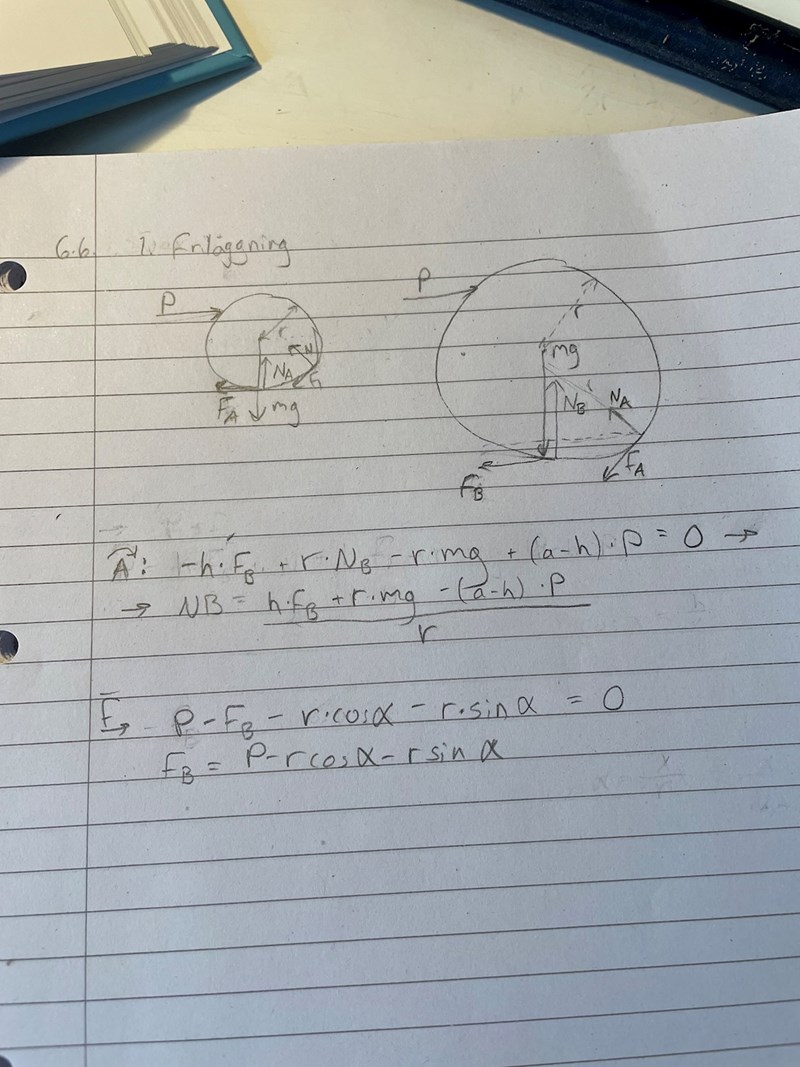 6.6. 1. Enläggning
P
r
N
NA
F
FA
mg
P
r
mg
r
NB
NA
FB
FA
A: -h·FB + r·NB - r·mg + (a-h)·P = 0 →
→ NB = h·FB + r·mg - (a-h)·P
r
F→ P - FB - r·cosα - r·sinα = 0
FB = P - r cosα - r sin α